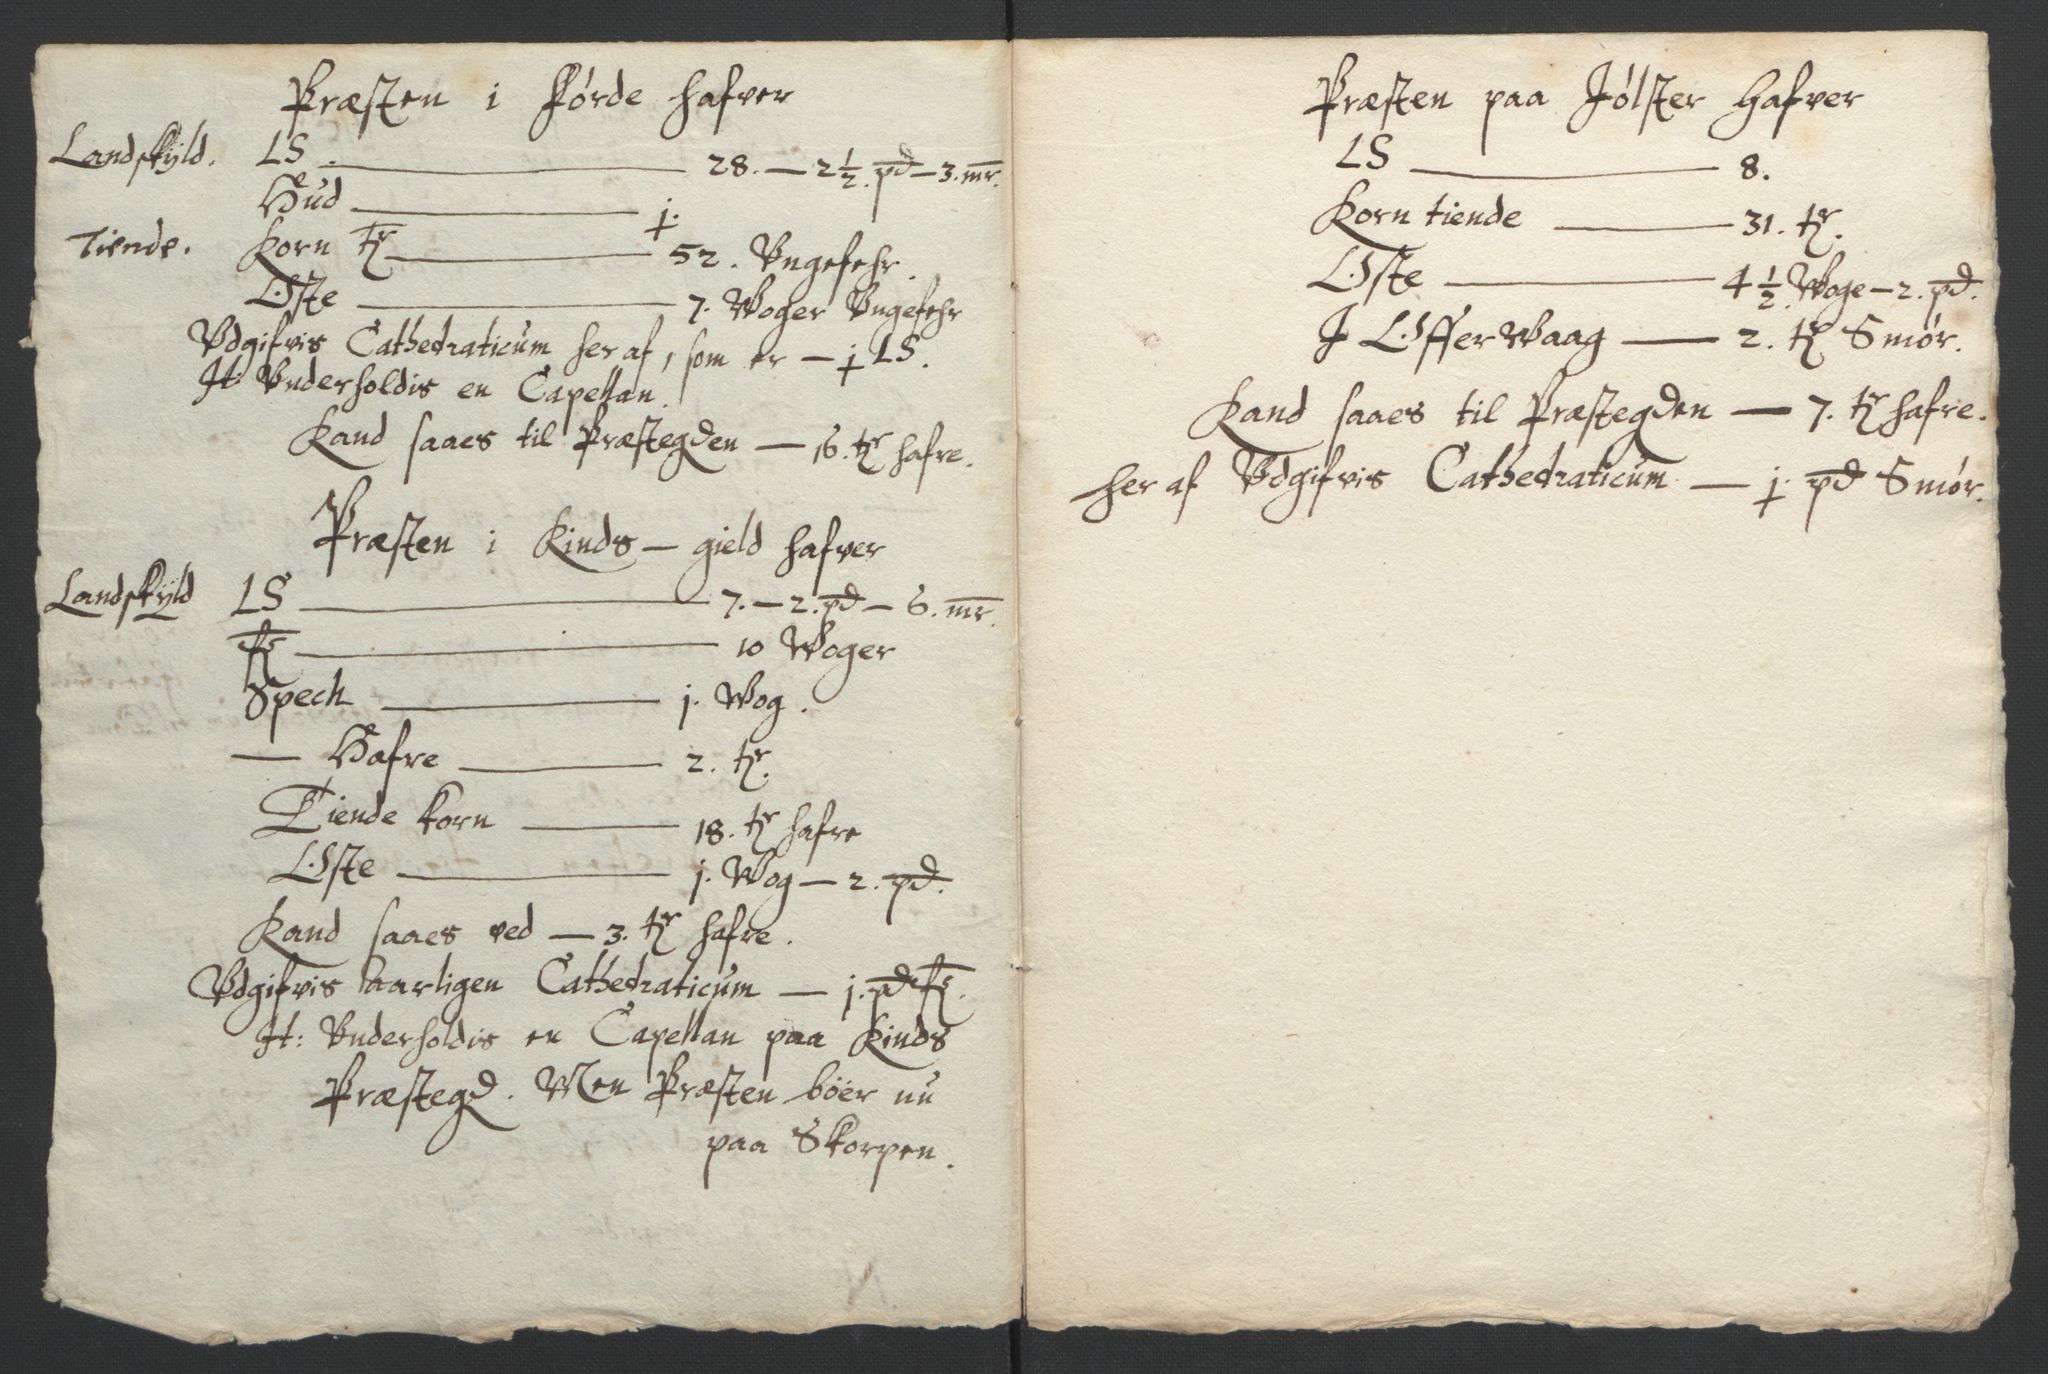 Præsten i Førde hafver
Landskyld. LS. 28. — 2 ½ pd — 3. mr.
Hud j.
Tiende. Korn tr 52. Vngefehr.
Oste 7. Woger Vngefehr
Vdgifvis Cathedraticum her af, som er — j LS.
It: Vnderholdis en Capellan.
Kand saaes til Præstegden — 16. tr hafre.
Præsten i Kinds — gield hafver
Landskyld LS 7. — 2. pd — 6. mr.
fk 10 Woger
Spech j. Wog.
— Hafre 2. tr.
Tiende korn 18. tr hafre
Oste j. Wog — 2. pd.
Kand saaes ved — 3. tr hafre.
Vdgifvis aarligen Cathedraticum — j. pd fk.
It: Vnderholdis en Capellan paa Kinds
Præstegd. Men Præsten böer nu
paa Skorpen.
Præsten paa Jølster Hafver
LS 8.
Korn tiende 31. tr.
Oste 4 ½ Woge — 2. pd.
J Offer Waag — 2. tr Smør.
Kand saaes til Præstegden — 7. tr hafre.
her af Vdgifvis Cathedraticum — j. pd Smør.